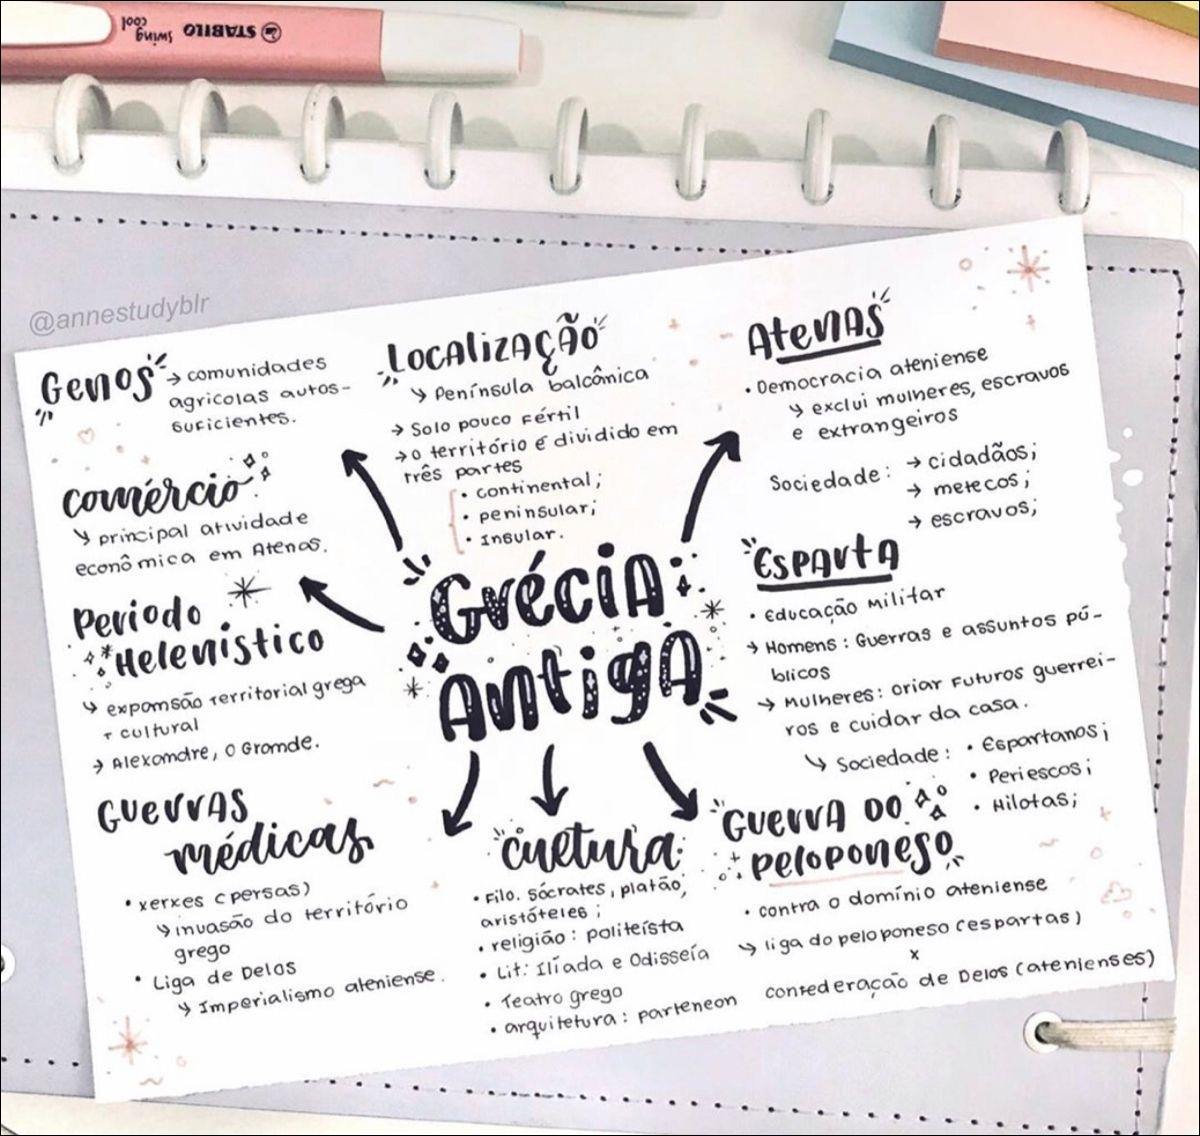 STABILO
swing
cool
@annestudyblr
Genos → comunidades
agricolas autos-
suficientes.
comércio
↳ principal atividade
econômica em Atenas.
Periodo
Helenistico
↳ expansão territorial grega
+ cultural
→ Alexandre, o Grande.
Guerras
médicas
• xerxes (persas)
↳ invasão do território
grego
• Liga de Delos
↳ Imperialismo ateniense.
Localização
↳ Península balcônica
→ Solo pouco fértil
→ o território é dividido em
três partes
• continental;
• peninsular;
• Insular.
Grécia
Antiga
cultura
• Filo. Sócrates, platão,
aristóteles;
• religião: politeísta
• Lit: Ilíada e Odisseía
• Teatro grego
• arquitetura: parteneon
Atenas
• Democracia ateniense
↳ exclui mulheres, escravos
e extrangeiros
Sociedade: → cidadãos;
→ metecos;
→ escravos;
Esparta
• Educação Militar
→ Homens: Guerras e assuntos pú-
blicos
→ Mulheres: criar futuros guerrei-
ros e cuidar da casa.
↳ Sociedade: • Espartanos;
• Periescos;
• Hilotas;
Guerra do
peloponeso
• contra o domínio ateniense
↳ liga do peloponeso (espartas)
x
confederação de Delos (atenienses)